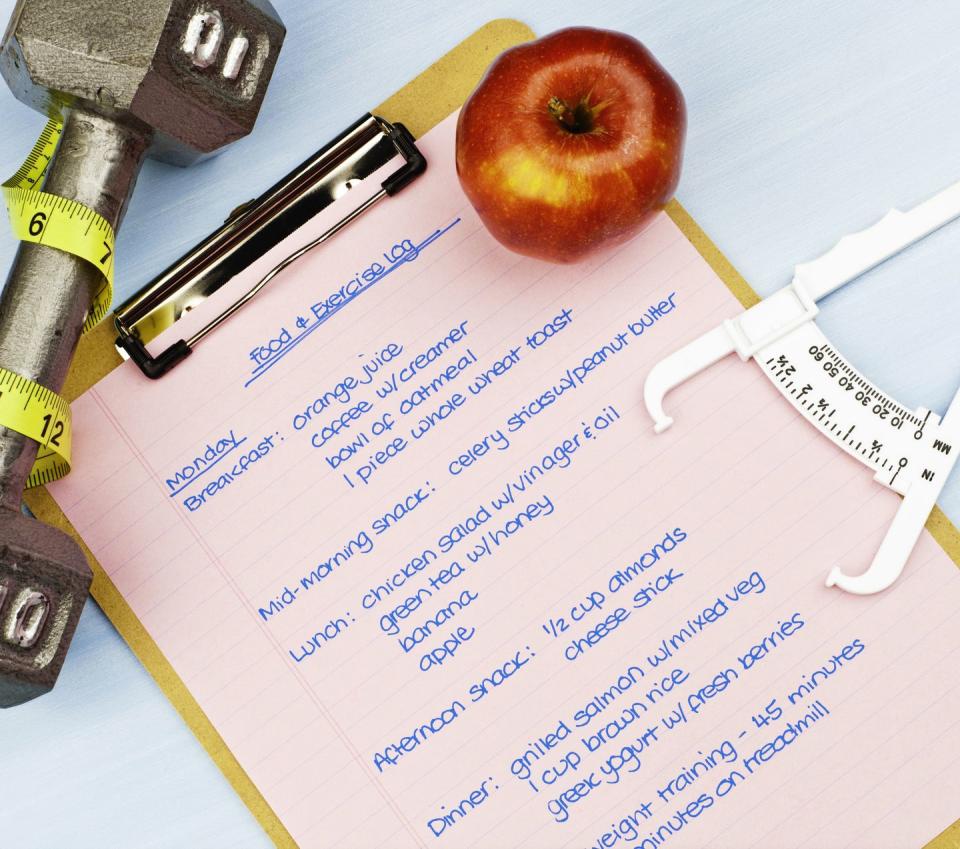 Food & Exercise Log
Monday
Breakfast: orange juice
coffee w/creamer
bowl of oatmeal
1 piece whole wheat toast
Mid-morning snack: celery sticks w/peanut butter
Lunch: chicken salad w/vinager & oil
green tea w/honey
banana
apple
Afternoon snack: 1/2 cup almonds
cheese stick
Dinner: grilled salmon w/mixed veg
1 cup brown rice
greek yogurt w/fresh berries
weight training - 45 minutes
minutes on treadmill
10
10
6
7
12
60 50 40 30 20 10 0 MM
2½ 2 1½ 1 ½ 0 IN